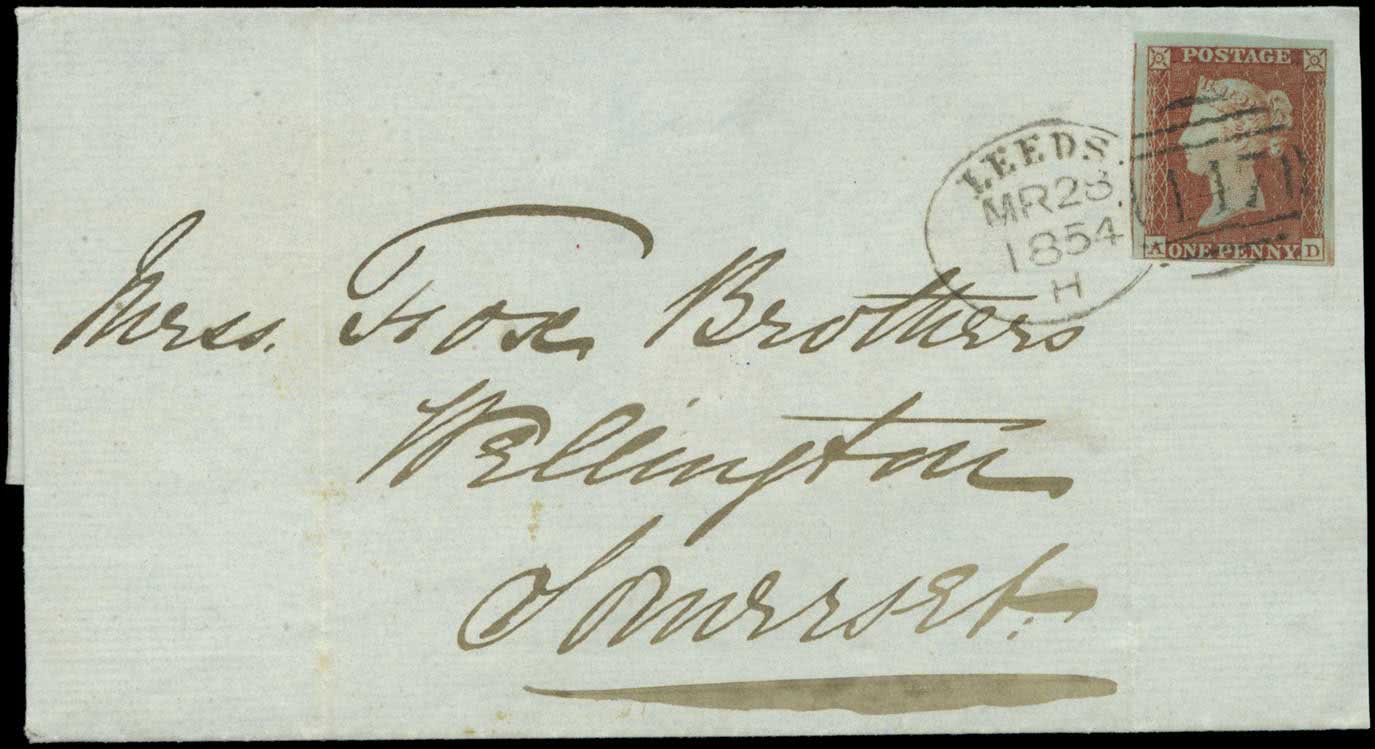 POSTAGE
ONE PENNY
A D
LEEDS
MR 28
1854
H
Mess. Fox Brothers
Wellington
Somerset